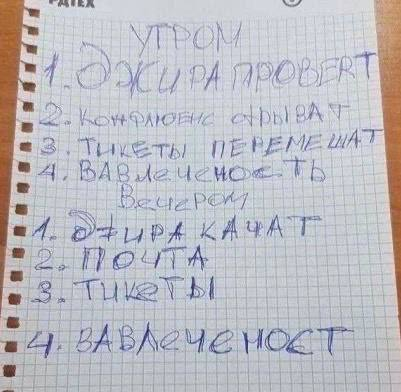 РАТЕХ
УТРОМ
1. ДЖИРА ПРОВЕRТ
2. КОНФЛЮЕНС ОТРЫВАТ
3. ТИКЕТЫ ПЕРЕМЕШАТ
4. ВАВЛЕЧЕНОСТЬ
Вечером
1. ДЖИРА КАЧАТ
2. ПОЧТА
3. ТИКЕТЫ
4. ВАВЛЕЧЕНОСТ